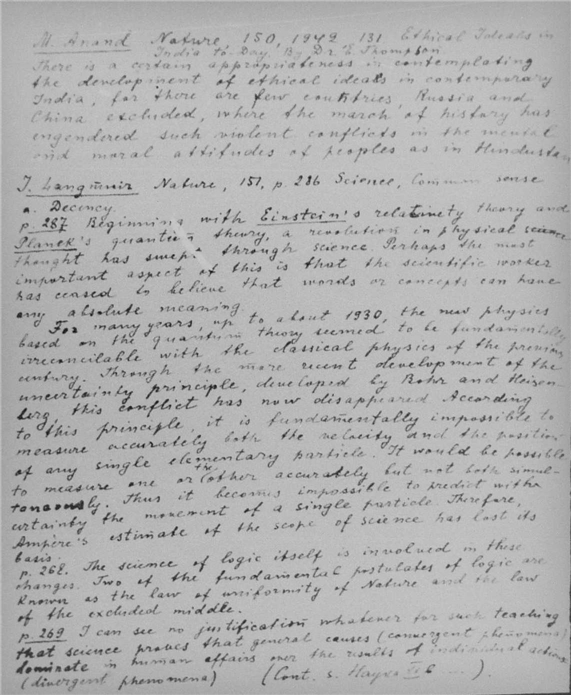 M. Anand Nature 150, 1942 131 Ethical Ideals in
India to-Day. By Dr. E. Thompson.
There is a certain appropriateness in contemplating
the development of ethical ideals in contemporary
India, for there are few countries, Russia and
China excluded, where the march of history has
engendered such violent conflicts in the mental
and moral attitudes of peoples as in Hindustan
I. Langmuir Nature, 151, p. 286 Science, Common sense
a. Decency.
p. 287 Beginning with Einstein's relativity theory and
Planck's quantum theory, a revolution in physical science
thought has swept through science. Perhaps the most
important aspect of this is that the scientific worker
has ceased to believe that words or concepts can have
any absolute meaning.
For many years, up to about 1930, the new physics
based on the quantum theory seemed to be fundamentally
irreconcilable with the classical physics of the previous
century. Through the more recent development of the
uncertainty principle, developed by Bohr and Heisen-
berg, this conflict has now disappeared According
to this principle, it is fundamentally impossible to
measure accurately both the velocity and the position
of any single elementary particle. It would be possible
to measure one or the other accurately but not both simul-
taneously. Thus it becomes impossible to predict with
certainty the movement of a single particle. Therefore,
Ampère's estimate of the scope of science has lost its
basis.
p. 268. The science of logic itself is involved in these
changes. Two of the fundamental postulates of logic are
known as the law of uniformity of Nature and the law
of the excluded middle.
p. 269 I can see no justification whatever for such teaching
that science proves that general causes (convergent phenomena)
dominate in human affairs over the results of individual actions
(divergent phenomena) (Cont. s.